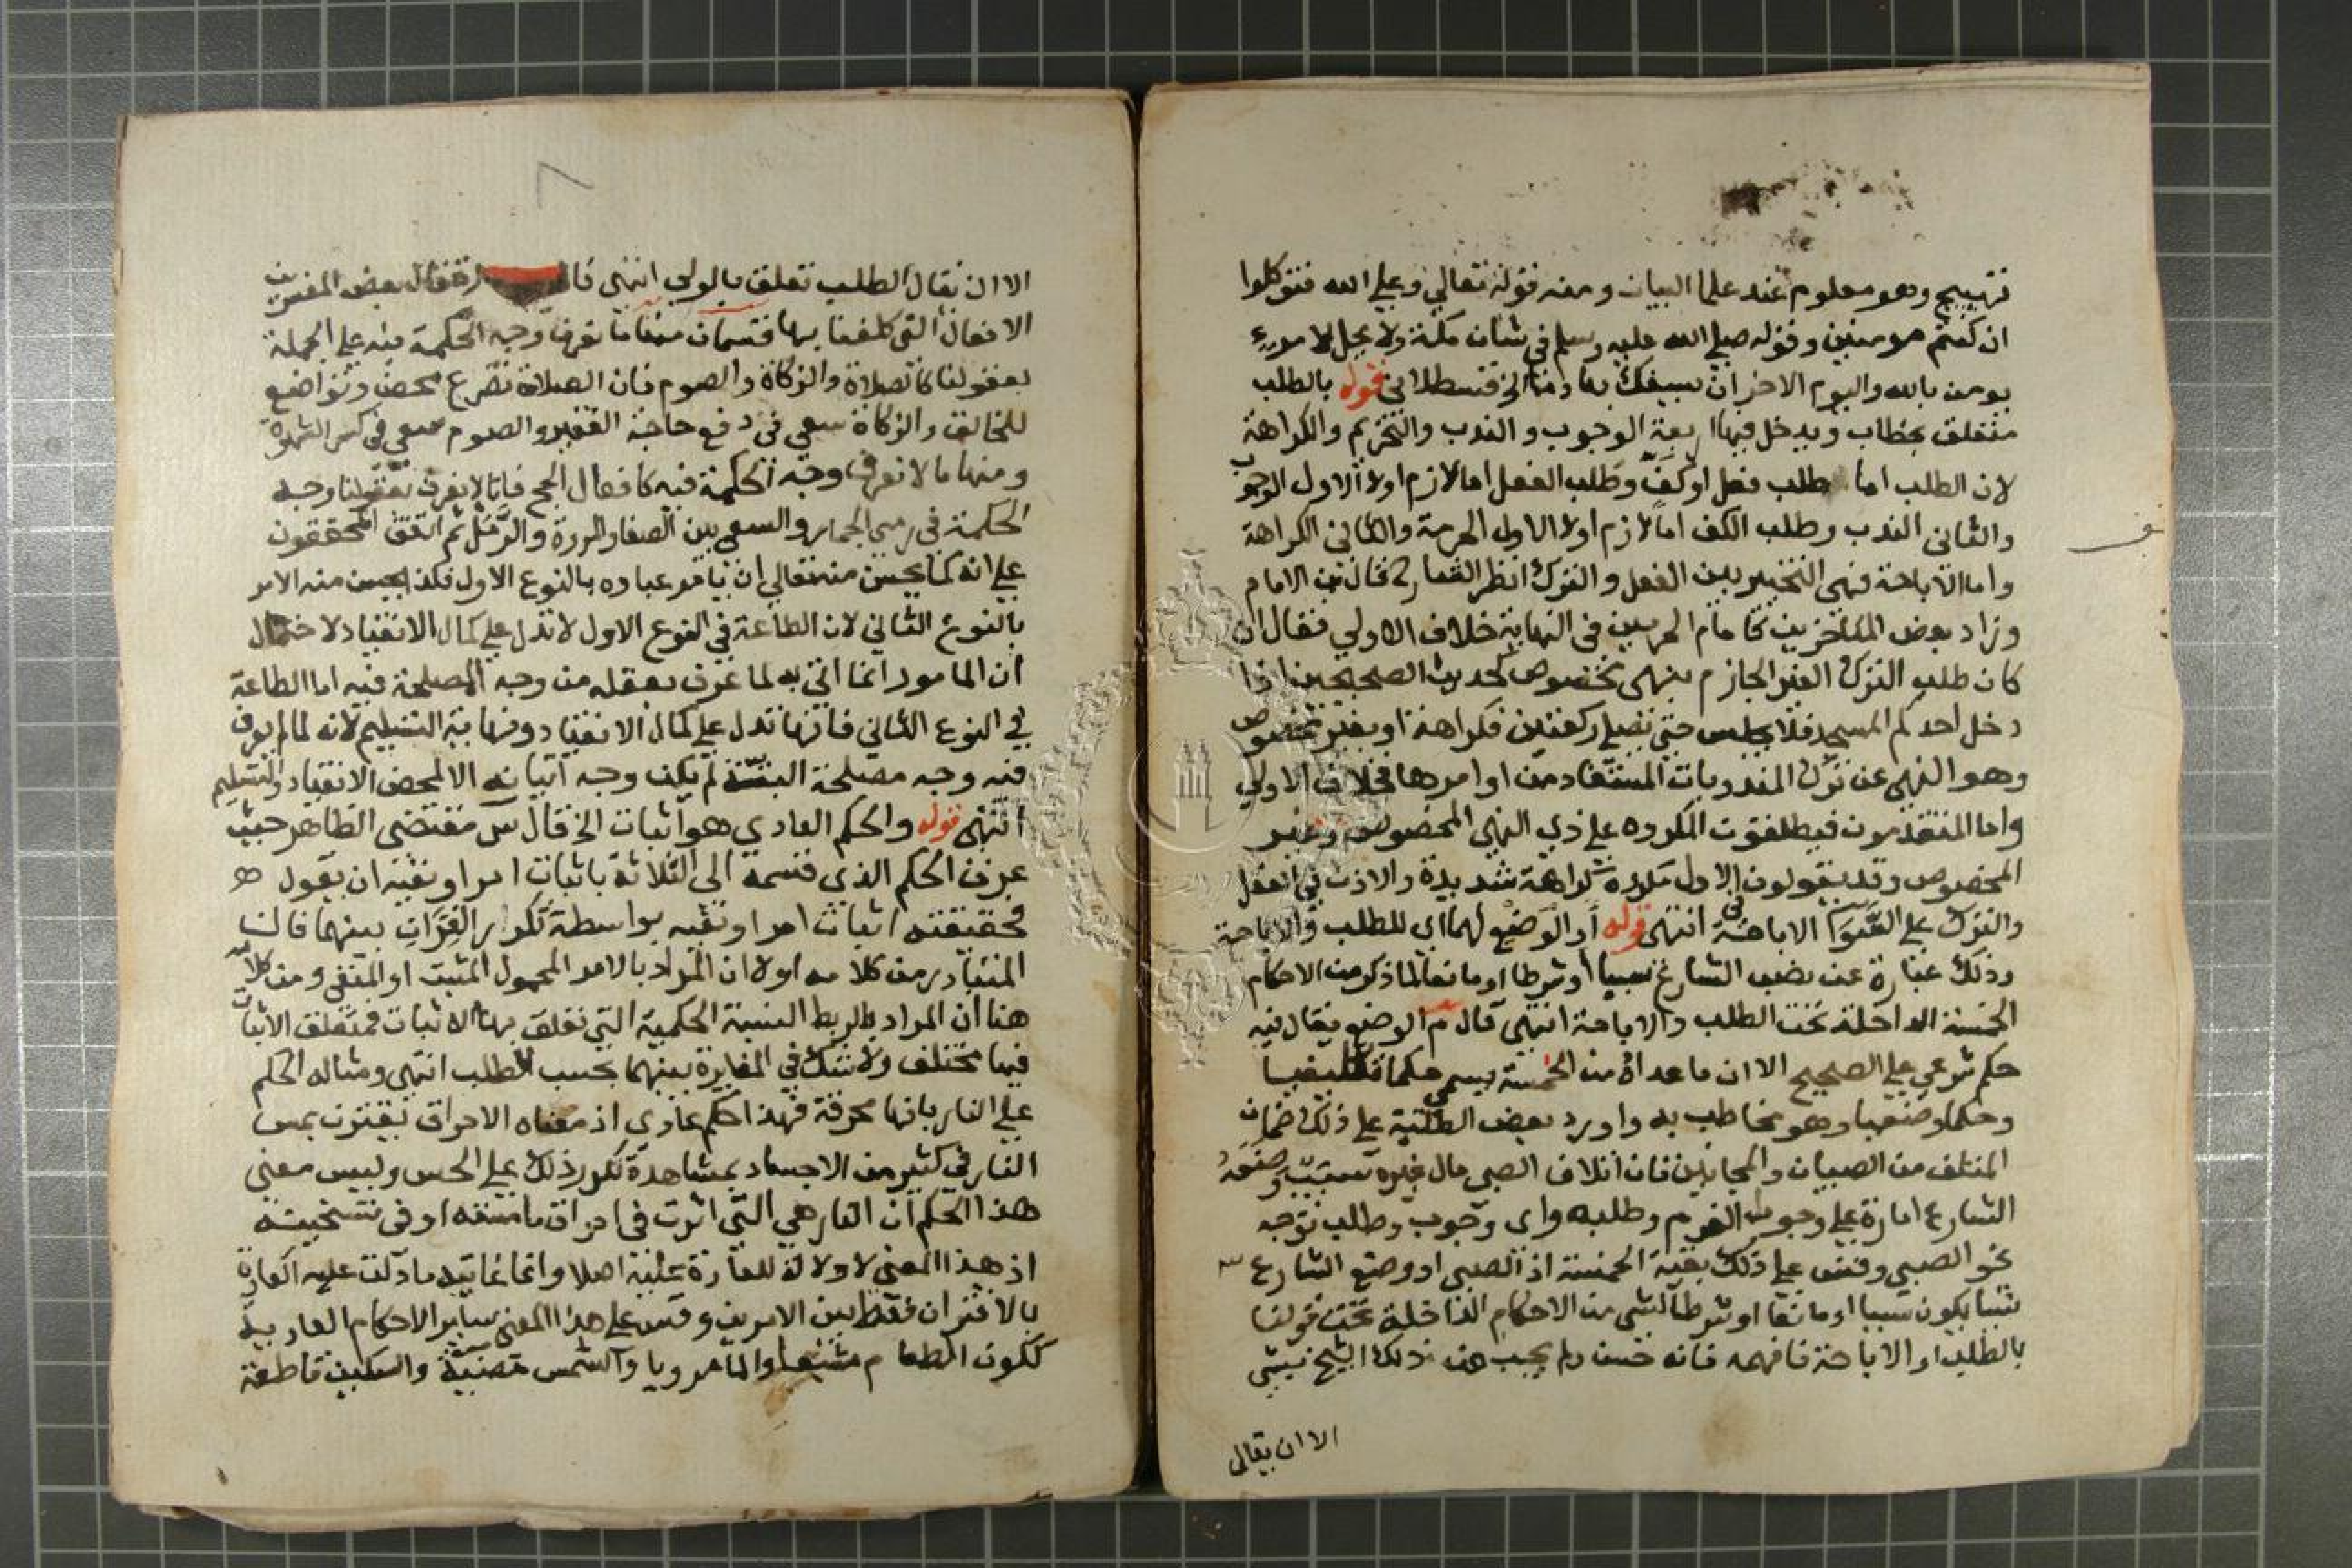 تهييج وهو معلوم عند علما البيان ومنه قوله تعالي وعلي الله فتوكلوا
ان كنتم مومنين وقوله صلي الله عليه وسلم في شان مكة ولا يحل لامرء
يومن بالله واليوم الاخر ان يسفك بها دما الخ قسطلاني قوله بالطلب
متعلق بخطاب ويدخل فيها اربعة الوجوب والندب والتحريم والكراهة
لان الطلب اما طلب فعل او كف وطلب الفعل اما لازم اولا الاول الوجوب
والثاني الندب وطلب الكف اما لازم اولا الاول الحرمة والثاني الكراهة
واما الاباحة فهي التخيير بين الفعل والترك انظر قال الامام
وزاد بعض المتاخرين كامام الحرمين في النهاية خلاف الاولي فقال ان
كان طلب الترك الغير الجازم بنهي مخصوص كحديث الصحيحين اذا
دخل احدكم المسجد فلا يجلس حتي يصلي ركعتين فكراهة او بغير مخصوص
وهو النهي عن ترك المندوبات المستفاد من اوامرها فخلاف الاولي
واما المتقدمون فيطلقون المكروه علي ذي النهي المخصوص وغير
المخصوص وقد يقولون في الاول مكروه كراهة شديدة والاذن في الفعل
والترك علي السوا الاباحة انتهي قوله او الوضع لهما اي للطلب والاباحة
وذلك عبارة عن نصب الشارع سببا او شرطا او مانعا لما ذكر من الاحكام
الخمسة الداخلة تحت الطلب والاباحة انتهي قال م الوضع يقال فيه
حكم شرعي علي الصحيح الا ان ما عداه من الخمسة يسمي حكما تكليفيا
وحكما وضعيا وهو مخاطب به واورد بعض الطلبة علي ذلك ضمان
المتلف من الصبيان والمجانين فان اتلاف الصبي مال غيره سبب وضعه
الشارع امارة علي وجوب الغرم وطلبه واي وجوب وطلب توجه
نحو الصبي وقس علي ذلك بقية الخمسة اذ الصبي او وضع الشارع
شيا يكون سببا او مانعا او شرطا لشي من الاحكام الداخلة تحت قولنا
بالطلب او الاباحة فافهمه فانه حسن ولم يجب عن ذلك الشيخ بشي
الا ان يقال
الا ان يقال الطلب تعلق بالولي انتهي قال بعض المفسرين
الافعال التي كلفنا بها قسمان منها ما نعرف وجه الحكمة فيه علي الجملة
بعقولنا كالصلاة والزكاة والصوم فان الصلاة تضرع محض وتواضع
للخالق والزكاة سعي في دفع حاجة الفقير والصوم سعي في كسر الشهوة
ومنها ما لا نعرف وجه الحكمة فيه كافعال الحج فانا لا نعرف بعقولنا وجه
الحكمة في رمي الجمار والسعي بين الصفا والمروة والرمل ثم اتفق المحققون
علي انه كما يحسن منه تعالي ان يامر عباده بالنوع الاول فكذا يحسن منه الامر
بالنوع الثاني لان الطاعة في النوع الاول لا تدل علي كمال الانقياد لاحتمال
ان المامور انما اتي به لما عرف بعقله من وجه المصلحة فيه اما الطاعة
في النوع الثاني فانها تدل علي كمال الانقياد ونهاية التسليم لانه لما لم يعرف
فيه وجه مصلحة البتة لم يكن وجه اتيانه الا لمحض الانقياد والتسليم
انتهي قوله والحكم العادي هو اثبات الخ قال س مقتضي الظاهر حيث
عرف الحكم الذي قسمه الي الثلاثة باثبات امر او نفيه ان يقول هو
حقيقته اثبات امر او نفيه بواسطة تكرار القران بينهما فالـ
المتبادر من كلامه اولا ان المراد بالامر المحمول المثبت او المنفي ومن كلامه
هنا ان المراد بالربط النسبة الحكمية التي تعلق بها الاثبات فمتعلق الاثبات
فيها مختلف ولا شك في المغايرة بينهما بحسب الطلب انتهي ومثاله الحكم
علي النار بانها محرقة فهذا حكم عادي اذ معناه الاحراق يقترن بمس
النار في كثير من الاجساد بمشاهدة تكرر ذلك علي الحس وليس معني
هذا الحكم ان النار هي التي اثرت في احراق ما مسته او في تسخينه
اذ هذا المعني لا دلالة للعادة عليه اصلا وانما غايته ما دلت عليه العادة
بالاقتران فقط بين الامرين وقس علي هذا المعني ساير الاحكام العادية
ككون الطعام مشبعا والما مرويا والشمس مضيئة والسكين قاطعة